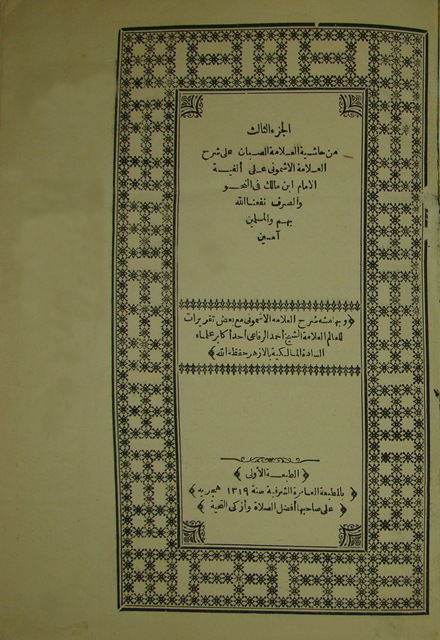 الجزء الثالث
من حاشية العلامة الصبان على شرح
العلامة الاشمونى على ألفية
الامام ابن مالك فى النحو
والصرف نفعنا الله
بهم والمسلمين
آمين
﴿وبهامشه شرح العلامة الاشمونى مع بعض تقريرات
للعالم العلامة الشيخ أحمد الرفاعى أحد أكابر علماء
السادة المالكية بالازهر حفظه الله﴾
﴿الطبعة الأولى﴾
﴿بالمطبعة العامرة الشرفية سنة ١٣١٩ هجرية﴾
﴿على صاحبها أفضل الصلاة وأزكى التحية﴾